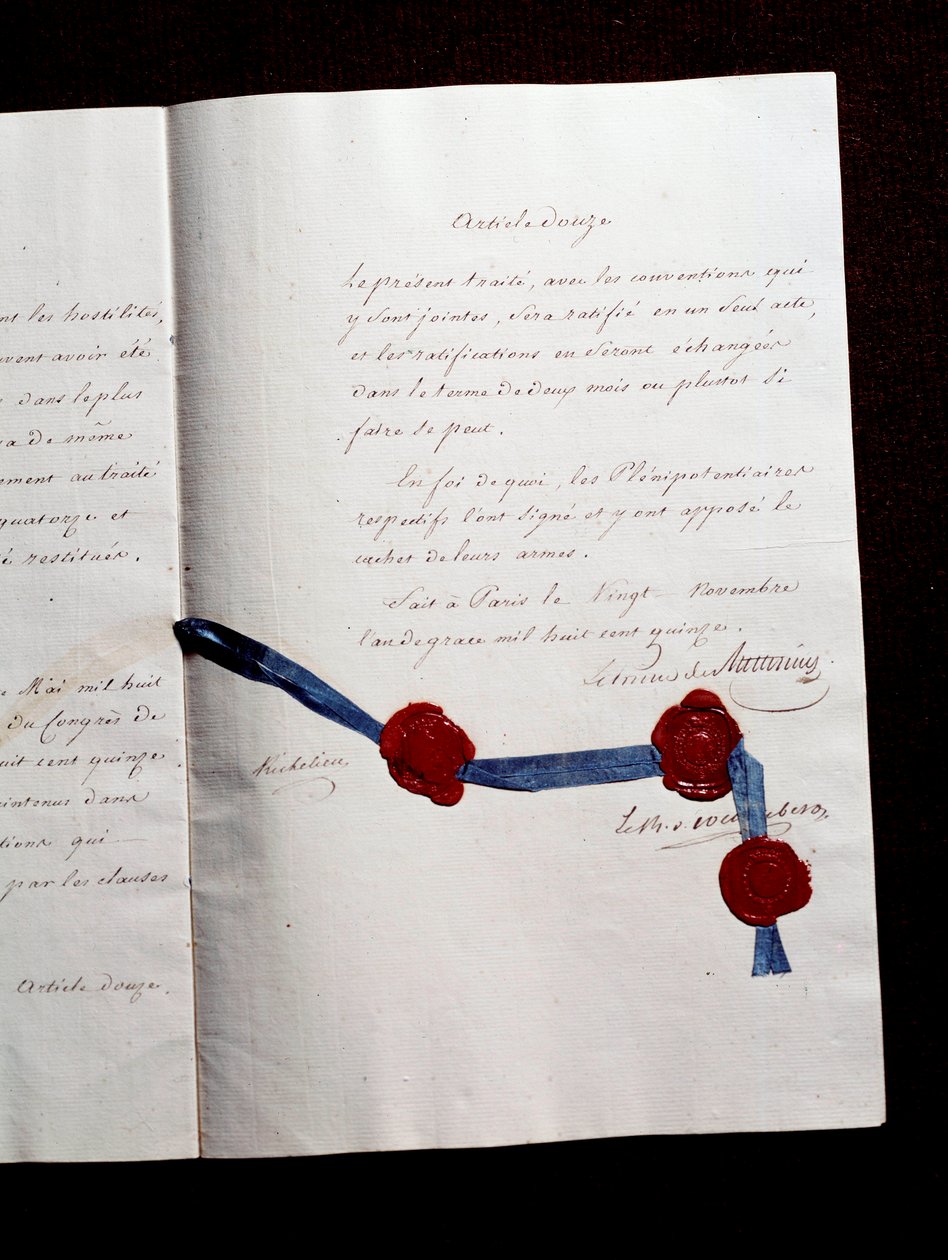 nt les hostilités,
uvent avoir été
dans le plus
a de même
ement au traité
quatorze et
é restitués.
Mai mil huit
du Congrès de
uit cent quinze
aintenus dans
tions qui
par les clauses
Article douze.
Article douze
Le présent traité, avec les conventions qui
y sont jointes, sera ratifié en un seul acte,
et les ratifications en seront échangées
dans le terme de deux mois ou plustot si
faire se peut.
En foi de quoi, les Plénipotentiaires
respectifs l'ont signé et y ont apposé le
cachet de leurs armes.
Fait à Paris le Vingt Novembre
l'an de grace mil huit cent quinze.
Le Prince de Metternich
Richelieu
Le B.